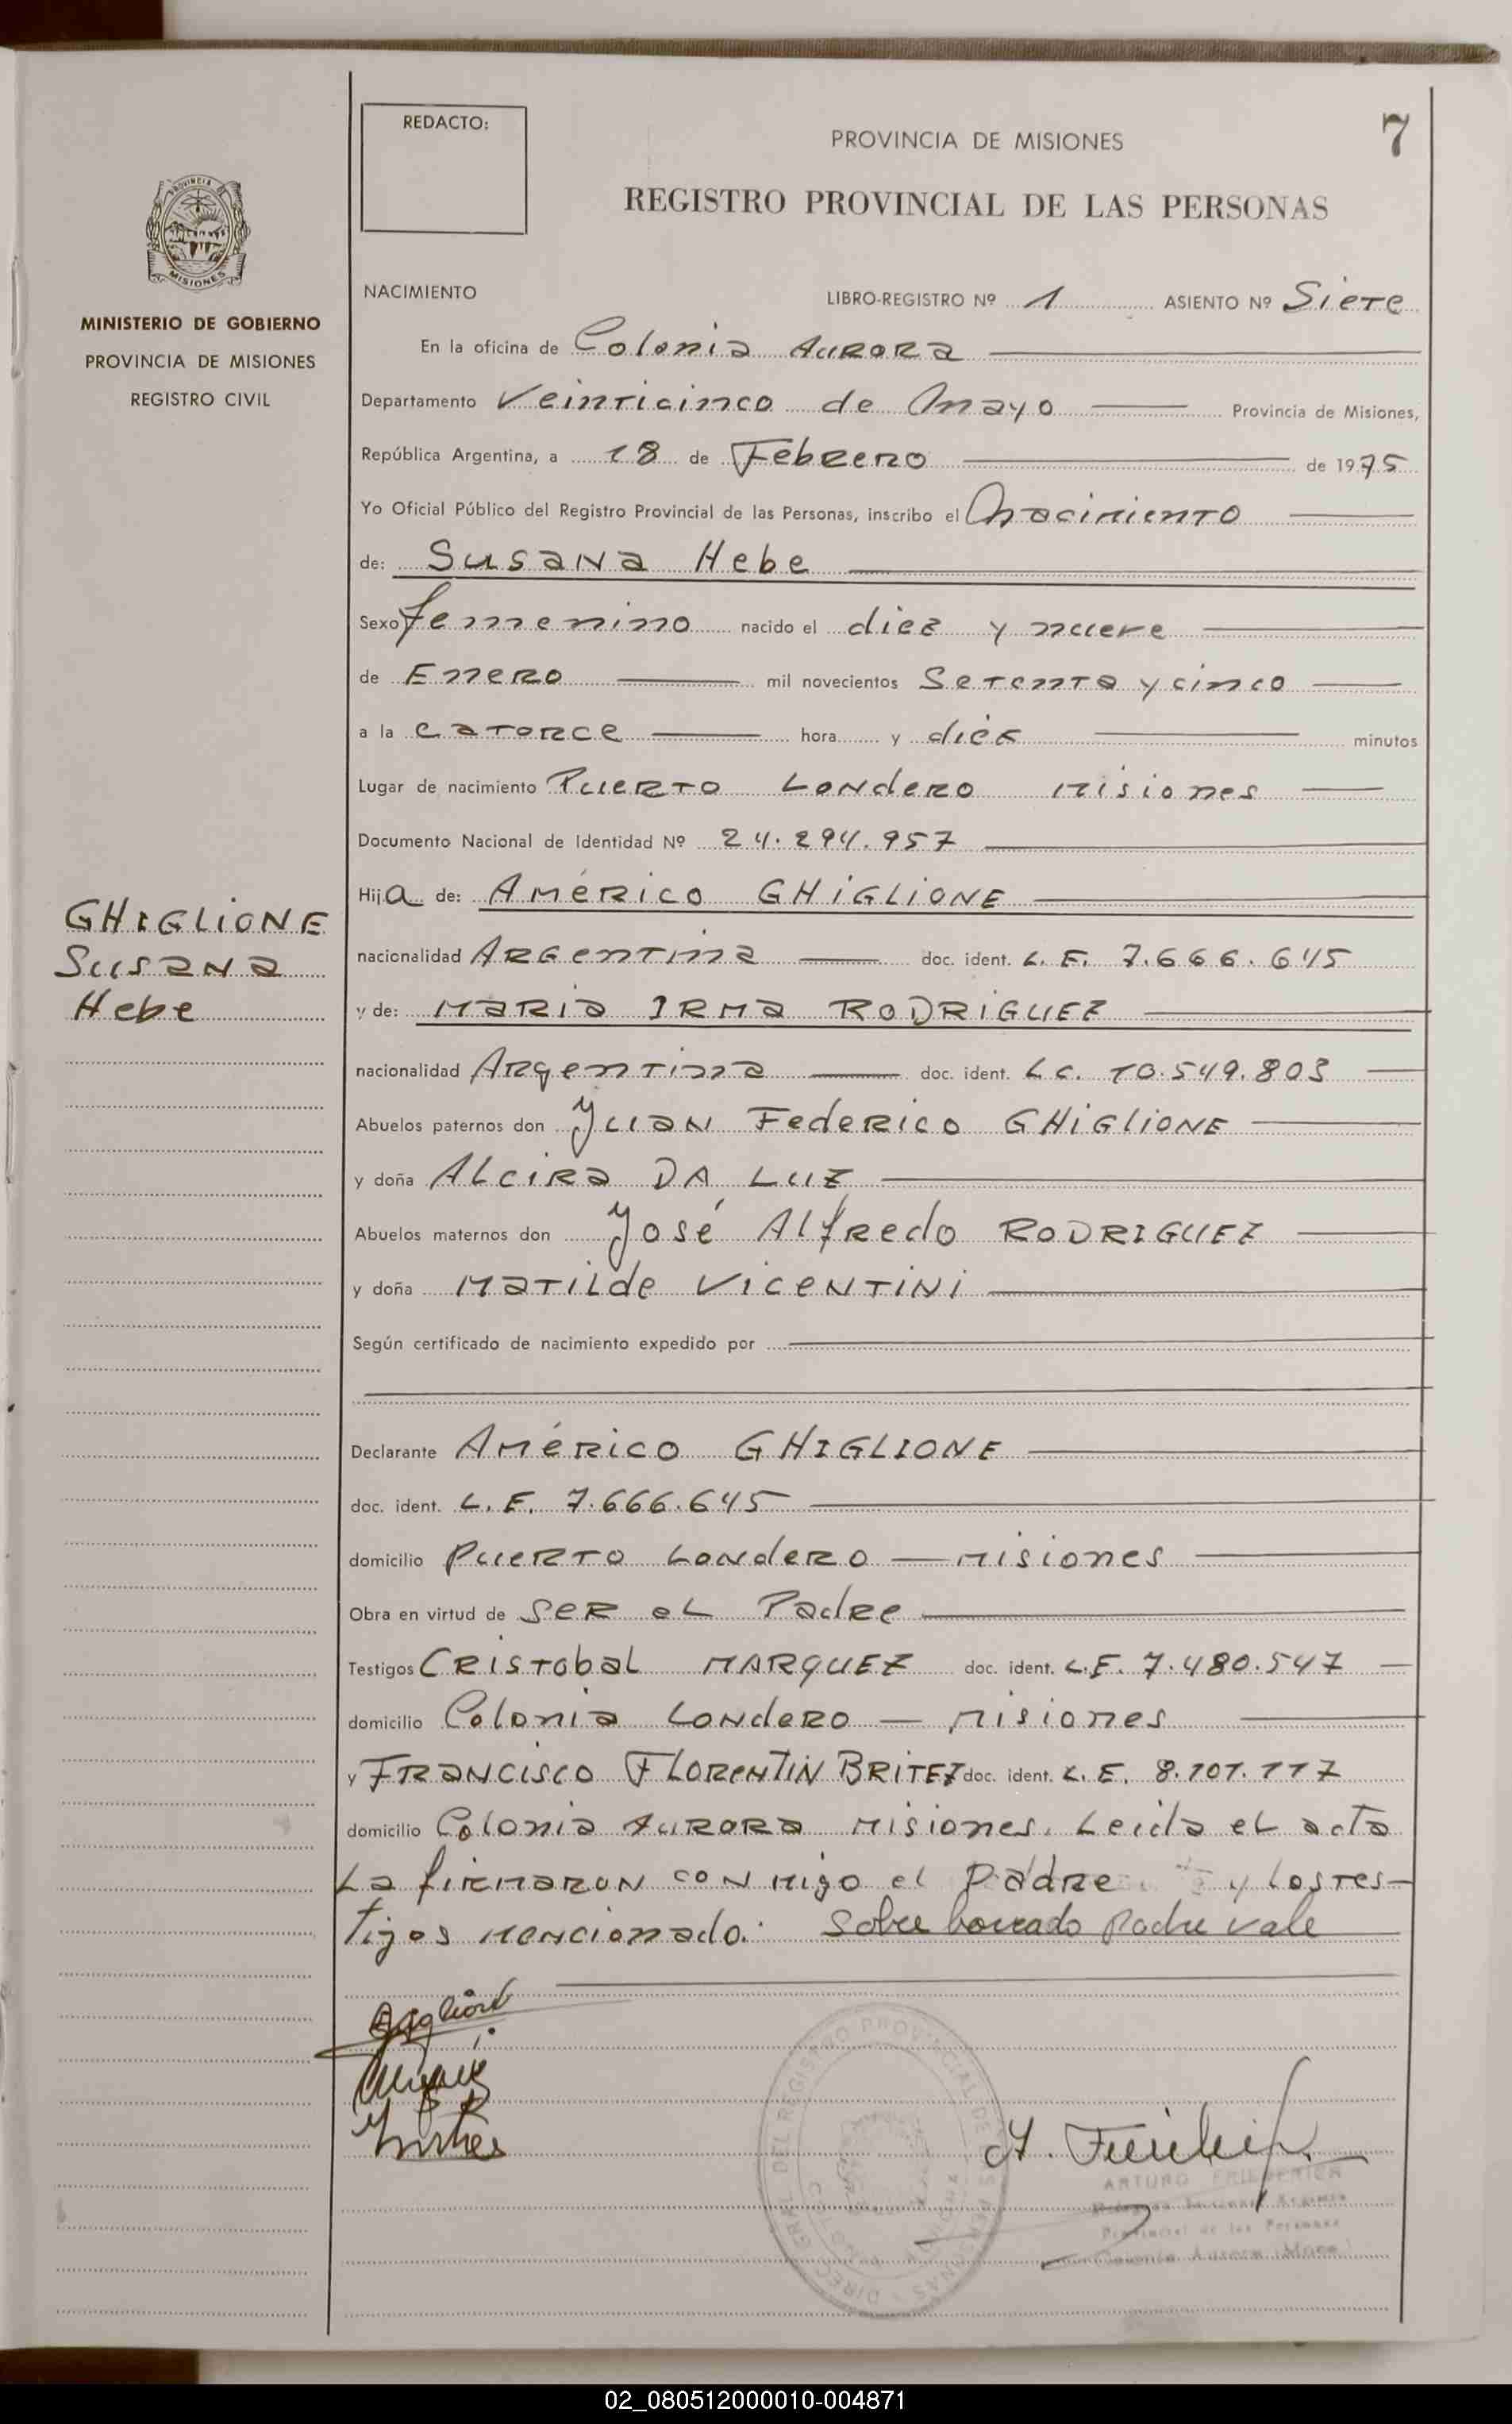 REDACTO:
7
PROVINCIA DE MISIONES
REGISTRO PROVINCIAL DE LAS PERSONAS
PROVINCIA
MISIONES
MINISTERIO DE GOBIERNO
PROVINCIA DE MISIONES
REGISTRO CIVIL
NACIMIENTO LIBRO-REGISTRO Nº 1 ASIENTO Nº Siete
En la oficina de Colonia Aurora
Departamento Veinticinco de Mayo Provincia de Misiones,
República Argentina, a 18 de Febrero de 1975
Yo Oficial Público del Registro Provincial de las Personas, inscribo el Nacimiento
de: Susana Hebe
Sexo femenino nacido el diez y nueve
de Enero mil novecientos Setenta y cinco
a la catorce hora y diez minutos
Lugar de nacimiento Puerto Londero Misiones
Documento Nacional de Identidad Nº 24.294.957
Hija de: Américo GHIGLIONE
nacionalidad Argentina doc. ident. L.E. 7.666.645
y de: Maria Irma RODRIGUEZ
nacionalidad Argentina doc. ident. L.C. 10.549.803
Abuelos paternos don Juan Federico GHIGLIONE
y doña Alcira DA LUZ
Abuelos maternos don José Alfredo RODRIGUEZ
y doña Matilde VICENTINI
Según certificado de nacimiento expedido por
Declarante Américo GHIGLIONE
doc. ident. L.E. 7.666.645
domicilio Puerto Londero — Misiones
Obra en virtud de ser el Padre
Testigos Cristobal MARQUEZ doc. ident. L.E. 7.480.547
domicilio Colonia Londero — Misiones
y Francisco Florentin BRITEZ doc. ident. L.E. 8.101.117
domicilio Colonia Aurora Misiones. Leida el acta
La firmaron conmigo el padre y los tes-
tigos mencionado. Sobre borrado padre vale
GHIGLIONE
Susana
Hebe
ARTURO
Provincial de las Personas
Colonia Aurora
02_080512000010-004871